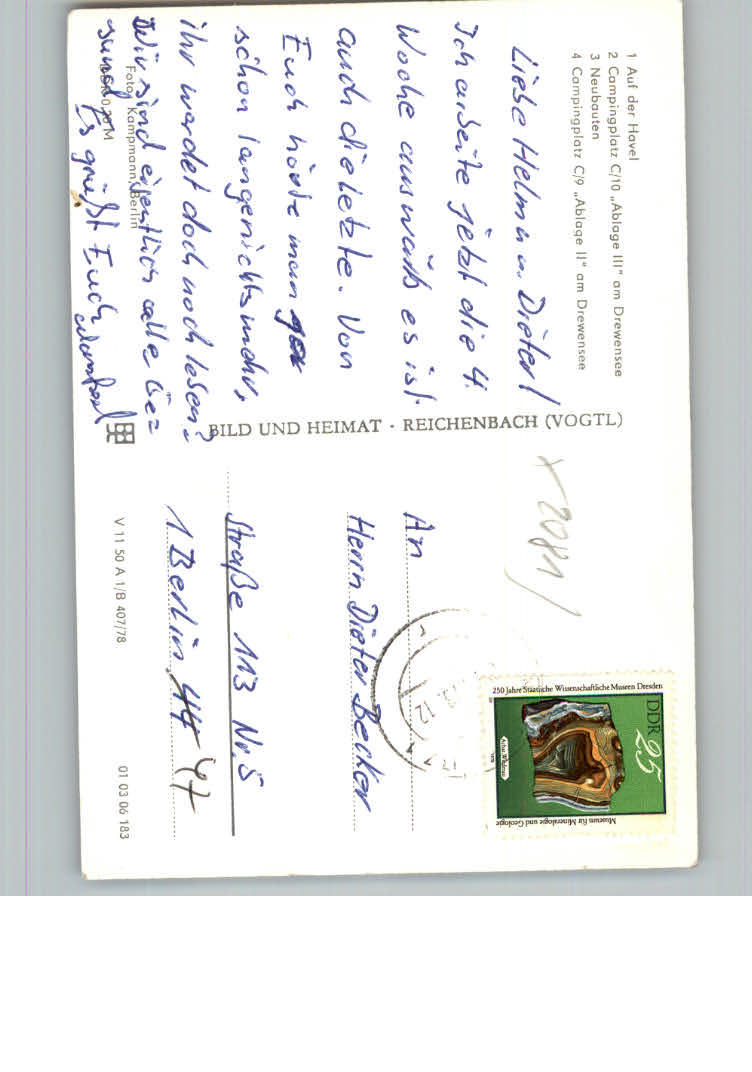 1 Auf der Havel
2 Campingplatz C/10 „Ablage III" am Drewensee
3 Neubauten
4 Campingplatz C/9 „Ablage II" am Drewensee
Liebe Helm u. Dieter!
Ich arbeite jetzt die 4.
Woche auswärts es ist
auch die letzte. Von
Euch hörte man gar
schon lange nichts mehr,
ihr werdet doch noch leben?
Wir sind eigentlich alle Ge=
sund
Es grüßt Euch
Foto: Kampmann, Berlin
M
BILD UND HEIMAT · REICHENBACH (VOGTL)
V 11 50 A 1/B 407/78
01 03 06 183
x 2081
An
Herrn Dieter Becker
Straße 113 Nr. 5
1 Berlin 44 47
250 Jahre Staatliche Wissenschaftliche Museen Dresden
DDR 25
Museum für Mineralogie und Geologie
12
17